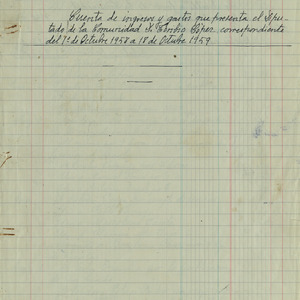 Cuenta de ingresos y gastos que presenta el Dipu-
tado de la Comunidad D. Pedro López correspondiente
del 1º de Octubre 1958 a 18 de Octubre 1959